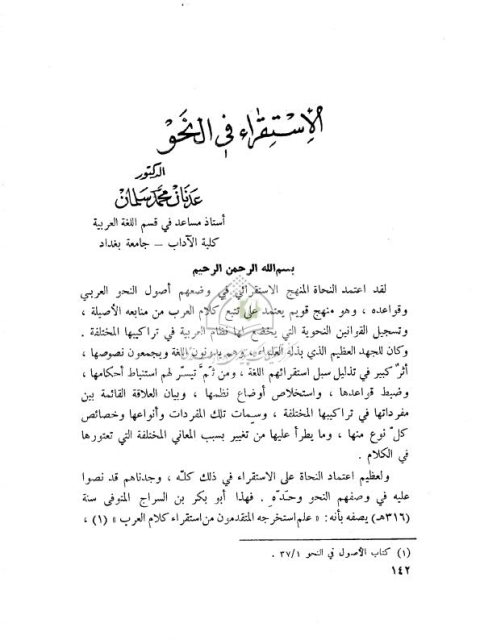 الاِسْتِقْراء في النَحَوْ
الدكتور
عدنان محمد سلمان
أستاذ مساعد في قسم اللغة العربية
كلية الآداب – جامعة بغداد
بسم الله الرحمن الرحيم
لقد اعتمد النحاة المنهج الاستقرائي في وضعهم أصول النحو العربي
وقواعده ، وهو منهج قويم يعتمد على تتبع كلام العرب من منابعه الأصيلة ،
وتسجيل القوانين النحوية التي يخضع لها نظام العربية في تراكيبها المختلفة .
وكان للجهد العظيم الذي بذله العلماء ، وهم يدونون اللغة ويجمعون نصوصها ،
أثرٌ كبير في تذليل سبل استقرائهم اللغة ، ومن ثَمَّ تيسّر لهم استنباط أحكامها ،
وضبط قواعدها ، واستخلاص أوضاع نظمها ، وبيان العلاقة القائمة بين
مفرداتها في تراكيبها المختلفة ، وسِمات تلك المفردات وأنواعها وخصائص
كلّ نوع منها ، وما يطرأ عليها من تغيير بسبب المعاني المختلفة التي تعتورها
في الكلام .
ولعظيم اعتماد النحاة على الاستقراء في ذلك كلّه ، وجدناهم قد نصوا
عليه في وصفهم النحو وحدّه . فهذا أبو بكر بن السراج المتوفى سنة
(٣١٦هـ) يصفه بأنه : « علم استخرجه المتقدمون من استقراء كلام العرب » (١) ،
(١) كتاب الأصول في النحو ٣٧/١ .
١٤٢